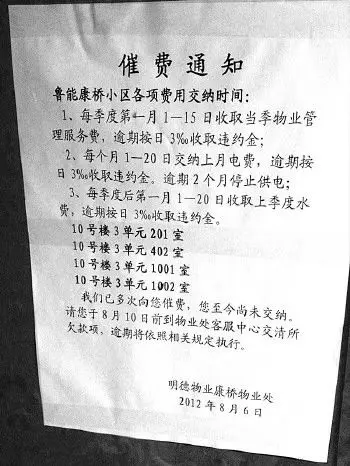 催费通知
鲁能康桥小区各项费用交纳时间：
1、每季度第一月 1—15 日收取当季物业管
理服务费，逾期按日 3‰收取违约金；
2、每个月 1—20 日交纳上月电费，逾期按
日 3‰收取违约金。逾期 2 个月停止供电；
3、每季度后第一月 1—20 日收取上季度水
费，逾期按日 3‰收取违约金。
10 号楼 3 单元 201 室
10 号楼 3 单元 402 室
10 号楼 3 单元 1001 室
10 号楼 3 单元 1002 室
我们已多次向您催费，您至今尚未交纳。
请您于 8 月 10 日前到物业处客服中心交清所
欠款项，逾期将依照相关规定执行。
明德物业康桥物业处
2012 年 8 月 6 日